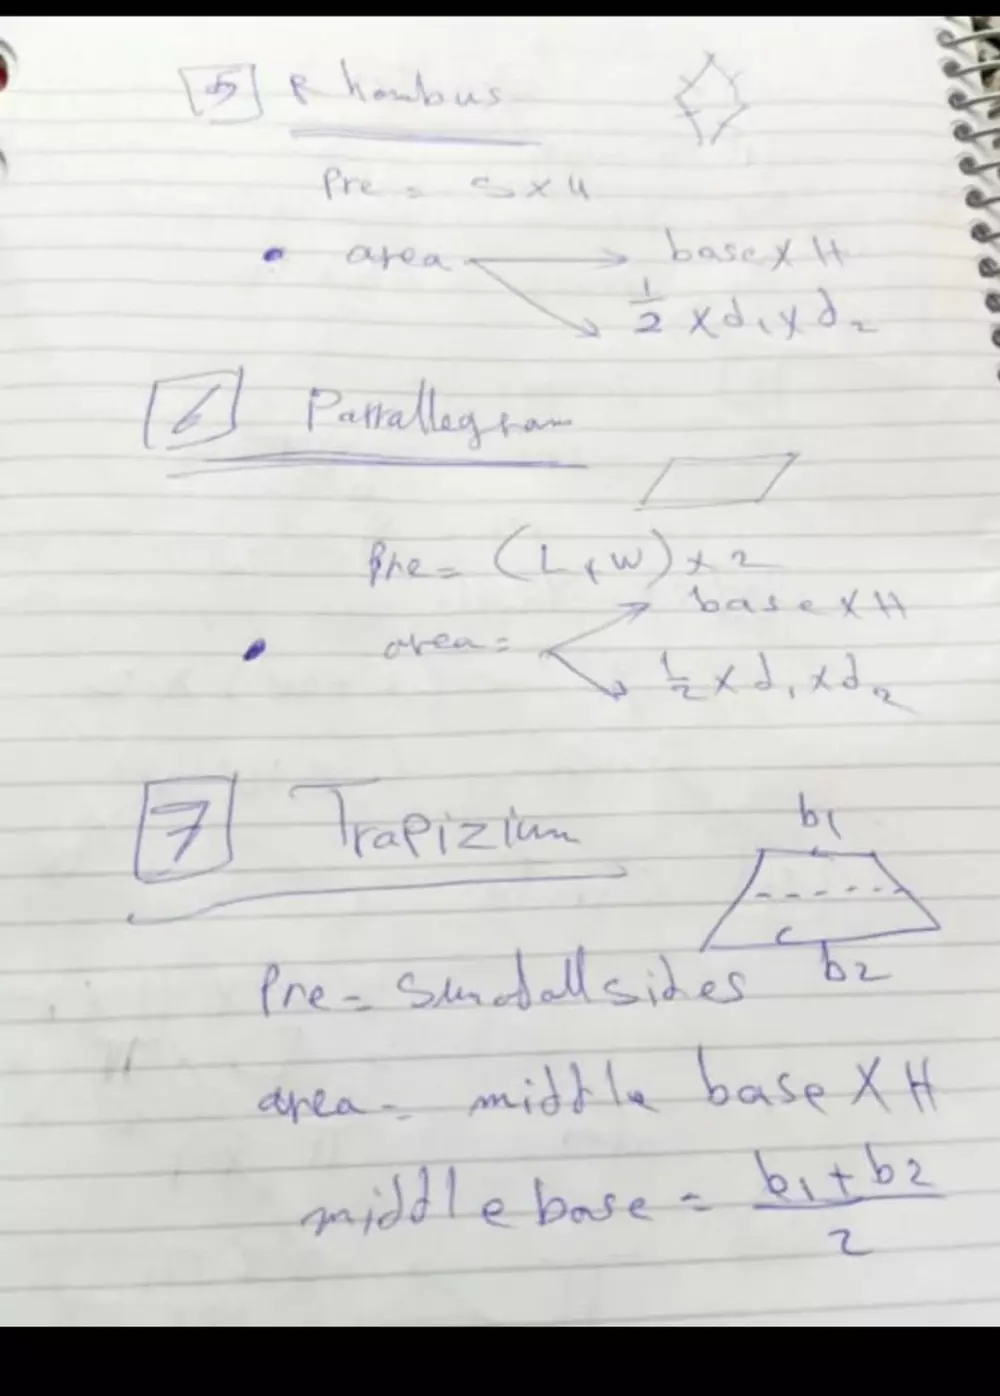 5 Rhombus
Pre = S x 4
• area base x H
1/2 x d1 x d2
6 Parrallegram
Pre = (L + W) x 2
base x H
• area =
1/2 x d1 x d2
7 Trapizium
b1
b2
Pre = Sum of all sides
area = middle base X H
middle base = b1 + b2 / 2